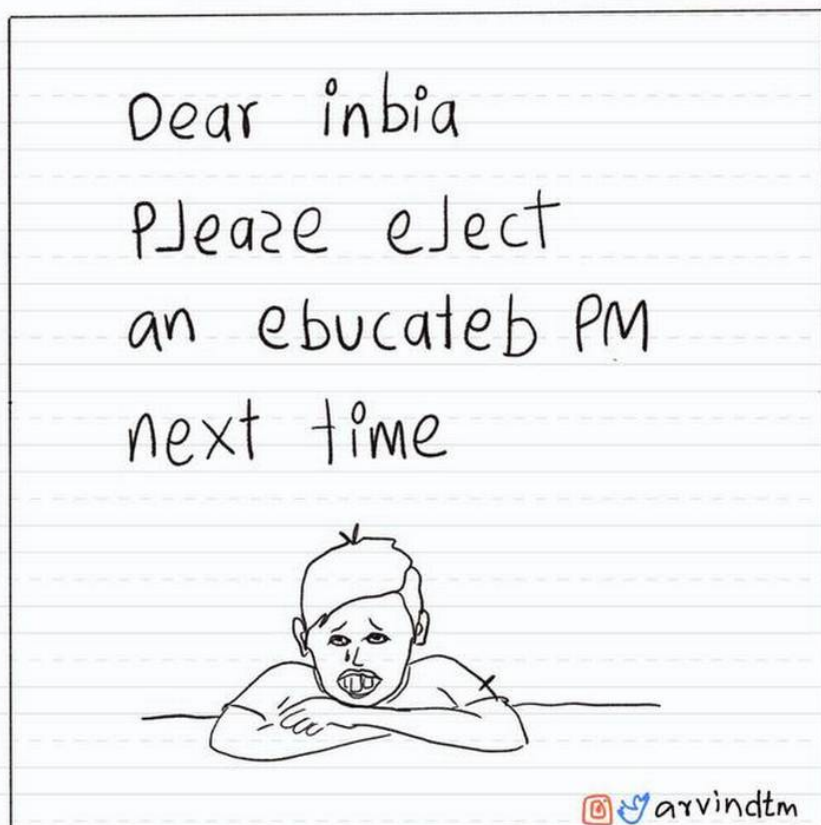 Dear inbia
PJeaze eJect
an ebucateb PM
next time
arvindtm